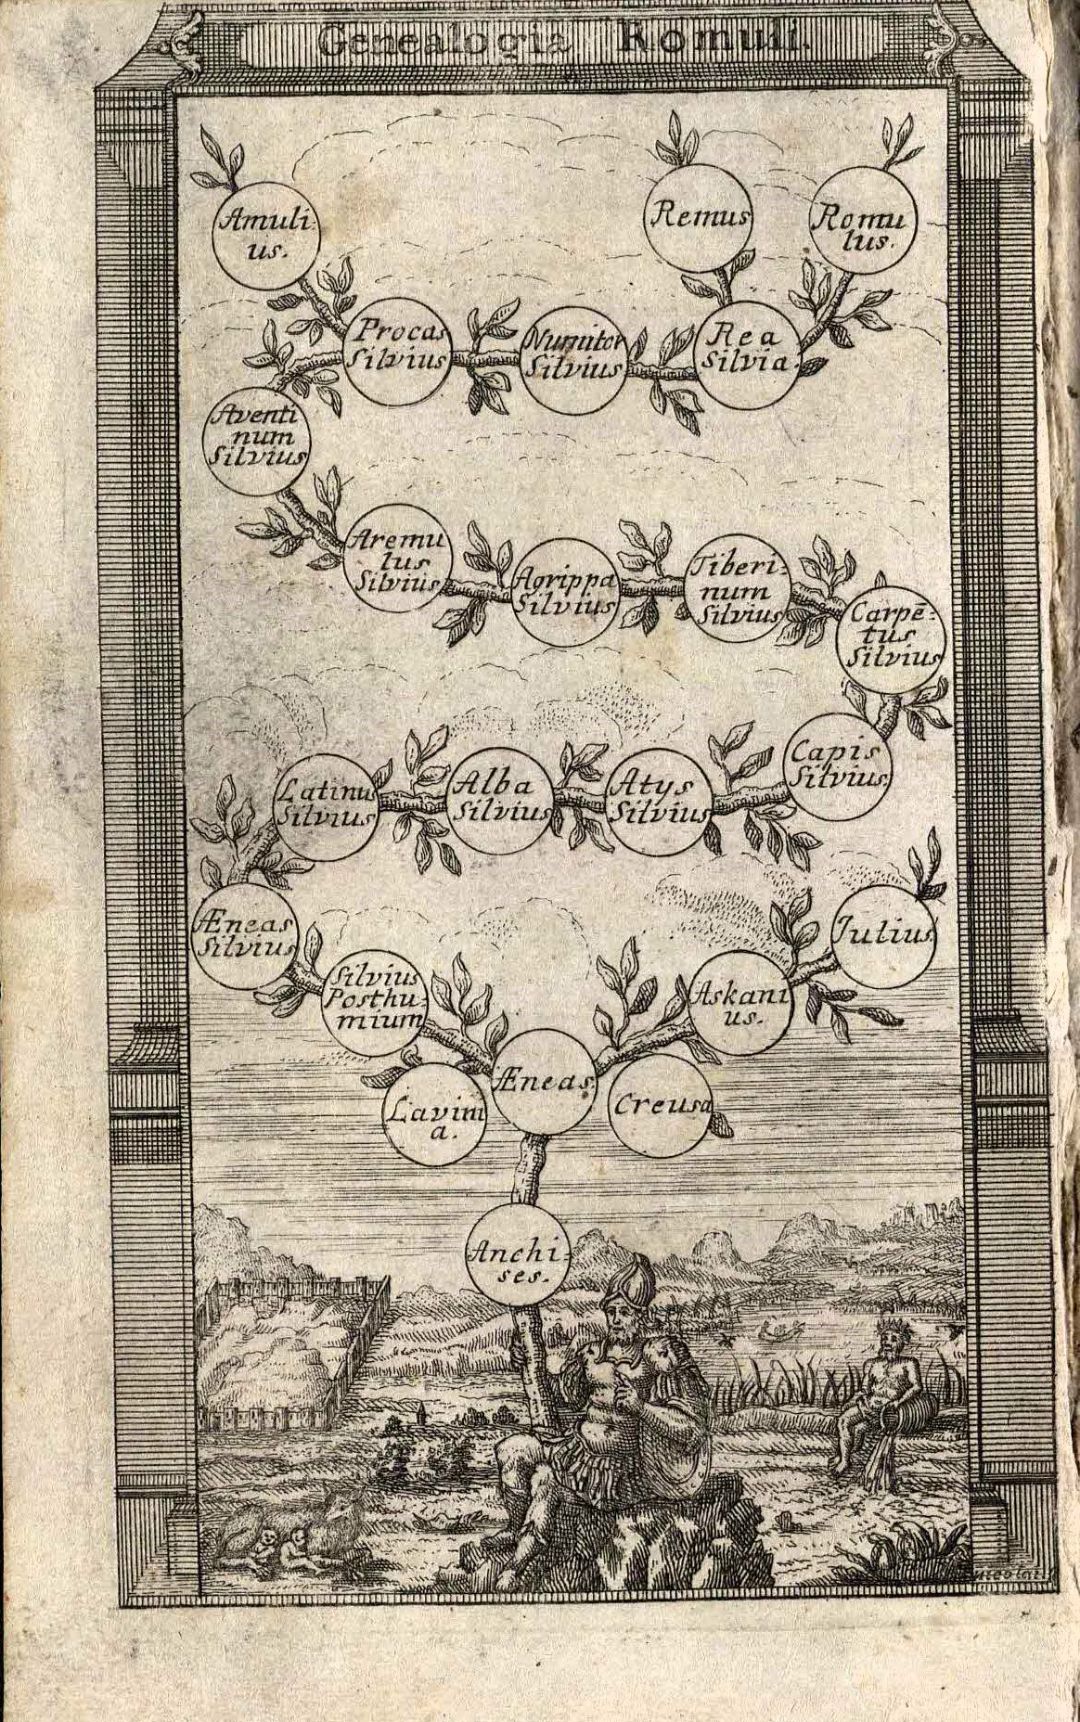 Genealogia Romuli.
Amuli-
us.
Remus
Romu
lus.
Procas
Silvius
Numitor
Silvius
Rea
Silvia
Aventi
num
Silvius
Aremu
lus
Silvius
Agrippa
Silvius
Tiberi-
num
Silvius
Carpē-
tus
Silvius
Latinus
Silvius
Alba
Silvius
Atys
Silvius
Capis
Silvius.
Æneas
Silvius
Silvius
Posthu-
mium
Askani
us.
Julius
Lavini
a.
Æneas.
Creusa
Anchi-
ses.